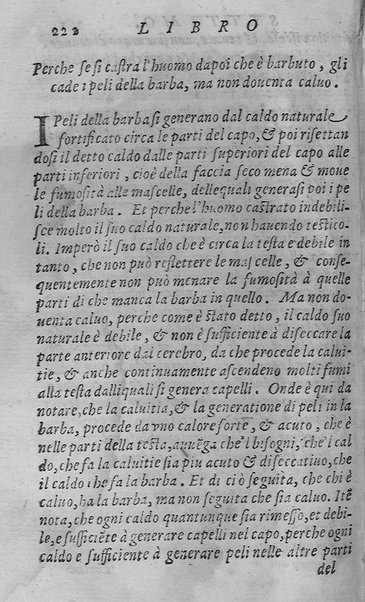 222 LIBRO
Perche se si castra l'huomo dapoi che è barbuto, gli
cade i peli della barba, ma non douenta caluo.
I Peli della barba si generano dal caldo naturale
fortificato circa le parti del capo, & poi risettan
dosi il detto caldo dalle parti superiori del capo alle
parti inferiori, cioè della faccia seco mena & moue
le fumosità alle mascelle, dellequali generasi poi i pe
li della barba. Et perche l'huomo castrato indebili-
sce molto il suo caldo naturale, non hauendo testico-
li. Imperò il suo caldo che è circa la testa e debile in
tanto, che non può reflettere le mascelle, & conse-
quentemente non può menare la fumosità à quelle
parti di che manca la barba in quello. Ma non do-
uenta caluo, perche come è stato detto, il caldo suo
naturale è debile, & non è sufficiente à diseccare la
parte anteriore dal cerebro, da che procede la calui-
tie, & anche continuamente ascendeno molti fumi
alla testa dalliquali si genera capelli. Onde è qui da
notare, che la caluitia, & la generatione di peli in la
barba, procede da vno calore forte, & acuto, che è
nelle parti della testa, auuẽga che i bisogni, che'l cal
do, che fa la caluitie sia piu acuto & diseccatiuo, che
il caldo che fa la barba. Et di ciò seguita, che chi è
caluo, ha la barba, ma non seguita che sia caluo. Itẽ
nota, che ogni caldo quantunque sia rimesso, et debi-
le, è sufficiẽte à generare capelli nel capo, perche ogni
caldo e sufficiente à generare peli nelle altre parti
del